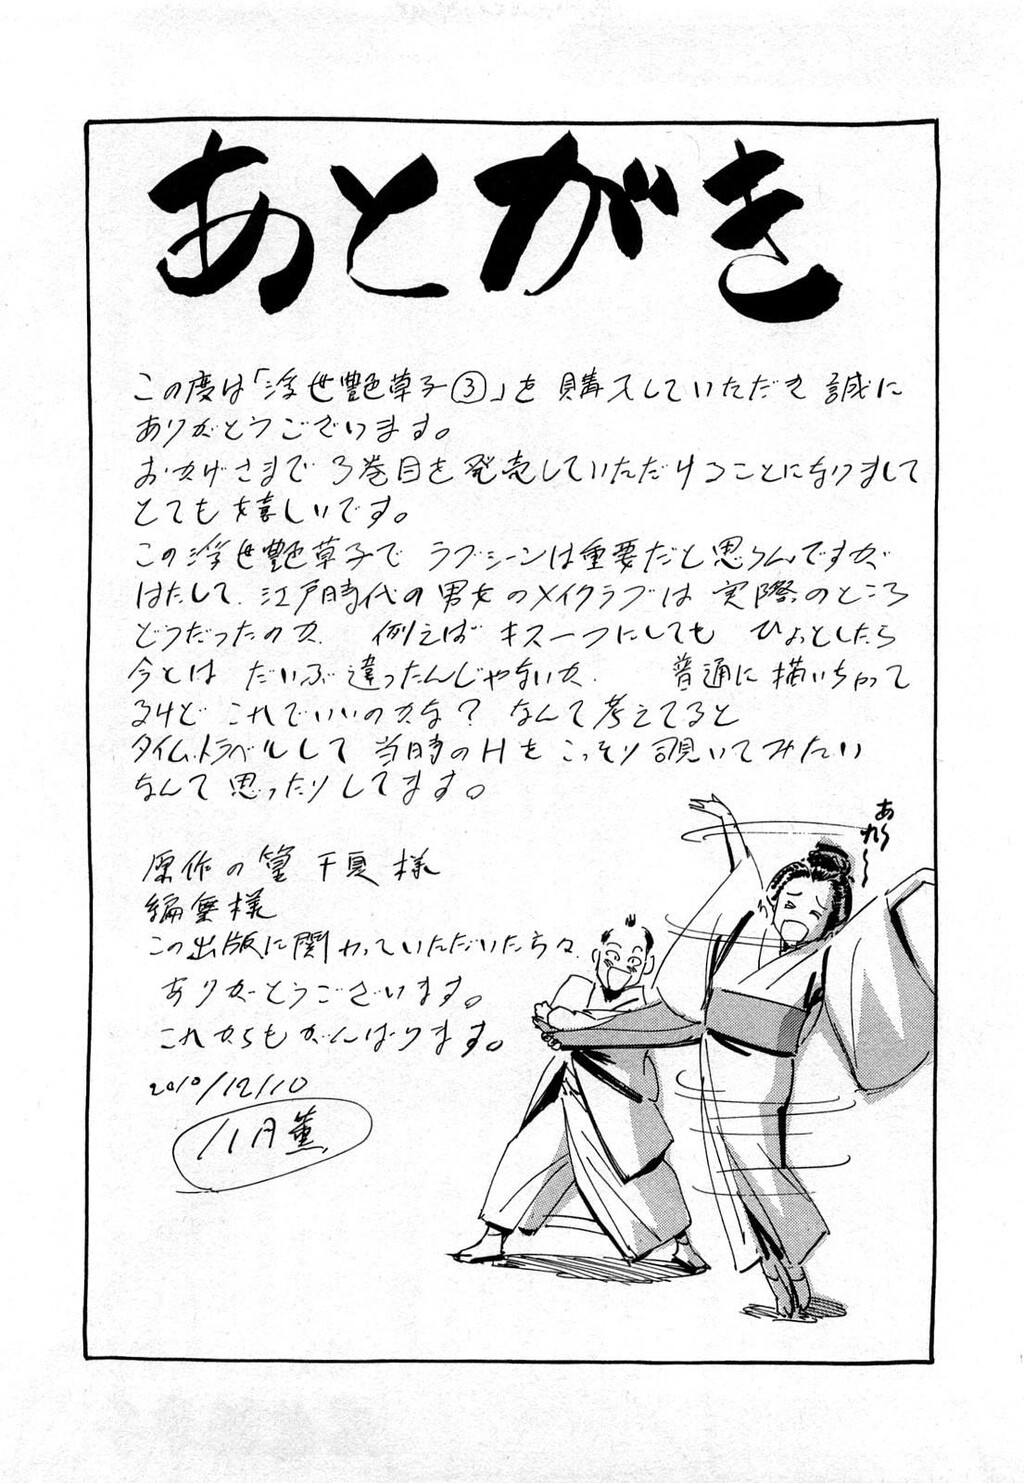 あとがき
この度は「浮世艶草子③」を購入していただき誠に
ありがとうございます。
おかげさまで3巻目を発売していただけることになりまして
とても嬉しいです。
この浮世艶草子でラブシーンは重要だと思うんですが
はたして、江戸時代の男女のメイクラブは実際のところ
どうだったのか、例えばキス一つにしてもひょっとしたら
今とはだいぶ違ったんじゃないか、普通に描いちゃって
るけどこれでいいのかな？なんて考えてると
タイム・トラベルして当時のHをこっそり覗いてみたい
なんて思ったりしてます。
あれ〜
原作の篁千夏様
編集様
この出版に関わっていただいた方々、
ありがとうございます。
これからもがんばります。
2010/12/10
八月薫